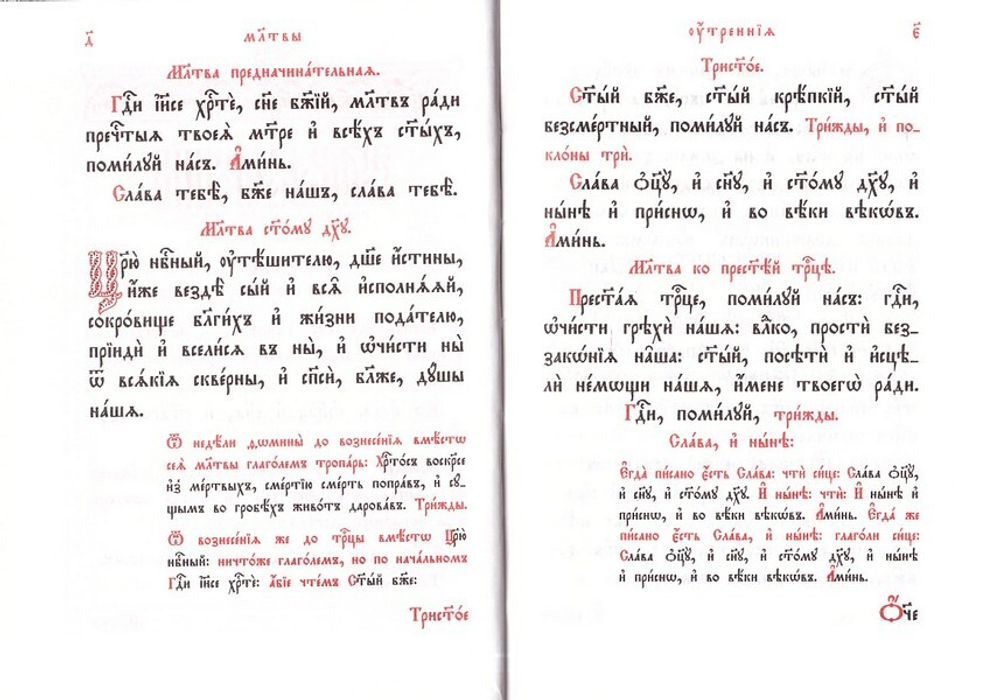 д҃ мл҃твы
Мл҃тва предначина́тельная.
Гдⷭ҇и і҆и҃се хрⷭ҇тѐ, сн҃е бж҃їй, мл҃твъ ра́ди
пречⷭ҇тыѧ твоеѧ̀ мт҃ре и҆ всѣ́хъ ст҃ы́хъ,
поми́лꙋй на́съ. А҆ми́нь.
Сла́ва тебѣ̀, бж҃е на́шъ, сла́ва тебѣ̀.
Мл҃тва ст҃о́мꙋ дх҃ꙋ.
Цр҃ю̀ нбⷭ҇ный, оу҆тѣ́шителю, дш҃е и҆́стины,
и҆́же вездѣ̀ сы́й и҆ всѧ̑ и҆сполнѧ́ѧй,
сокро́вище бл҃ги́хъ и҆ жи́зни пода́телю,
прїидѝ и҆ всели́сѧ въ ны̀, и҆ ѡ҆чи́сти ны̀
ѿ всѧ́кїѧ скве́рны, и҆ сп҃сѝ, бл҃же, дꙋ́шы
на́шѧ.
Ѿ недѣ́ли ѳѡмины̀ до вознесе́нїѧ вмѣ́стѡ
сеѧ̀ мл҃твы глаго́лемъ тропа́рь: Хрⷭ҇то́съ воскре́се
и҆з̾ ме́ртвыхъ, сме́ртїю сме́рть попра́въ, и҆ сꙋ́-
щымъ во гробѣ́хъ живо́тъ дарова́въ. Три́жды.
Ѿ вознесе́нїѧ же до трⷪ҇цы вмѣ́стѡ Цр҃ю̀
нбⷭ҇ный: ничто́же глаго́лемъ, но по нача́льномъ
Гдⷭ҇и і҆и҃се хрⷭ҇тѐ: а҆́бїе чте́мъ Ст҃ы́й бж҃е:
Трист҃о́е
оу҆́треннїѧ є҃
Трист҃о́е.
Ст҃ы́й бж҃е, ст҃ы́й крѣ́пкїй, ст҃ы́й
безсме́ртный, поми́лꙋй на́съ. Три́жды, и҆ по-
кло́ны трѝ.
Сла́ва ѻ҆ц҃ꙋ̀, и҆ сн҃ꙋ, и҆ ст҃о́мꙋ дх҃ꙋ, и҆
ны́нѣ и҆ при́снѡ, и҆ во вѣ́ки вѣкѡ́въ.
А҆ми́нь.
Мл҃тва ко прест҃ѣ́й трⷪ҇цѣ.
Прест҃а́ѧ трⷪ҇це, поми́лꙋй на́съ: гдⷭ҇и,
ѡ҆чи́сти грѣхѝ на́шѧ: влⷣко, простѝ без-
зако́нїѧ на̑ша: ст҃ы́й, посѣтѝ и҆ и҆сцѣ-
лѝ не́мѡщи на́шѧ, и҆́мене твоегѡ̀ ра́ди.
Гдⷭ҇и, поми́лꙋй, три́жды.
Сла́ва, и҆ ны́нѣ:
Е҆гда̀ пи́сано є҆́сть Сла́ва: чтѝ си́це: Сла́ва ѻ҆ц҃ꙋ̀,
и҆ сн҃ꙋ, и҆ ст҃о́мꙋ дх҃ꙋ. И҆ ны́нѣ: чтѝ: И҆ ны́нѣ и҆
при́снѡ, и҆ во вѣ́ки вѣкѡ́въ. А҆ми́нь. Е҆гда́ же
пи́сано є҆́сть Сла́ва, и҆ ны́нѣ: глаго́ли си́це:
Сла́ва ѻ҆ц҃ꙋ̀, и҆ сн҃ꙋ, и҆ ст҃о́мꙋ дх҃ꙋ, и҆ ны́нѣ
и҆ при́снѡ, и҆ во вѣ́ки вѣкѡ́въ. А҆ми́нь.
Ѻ҆́ч҃е